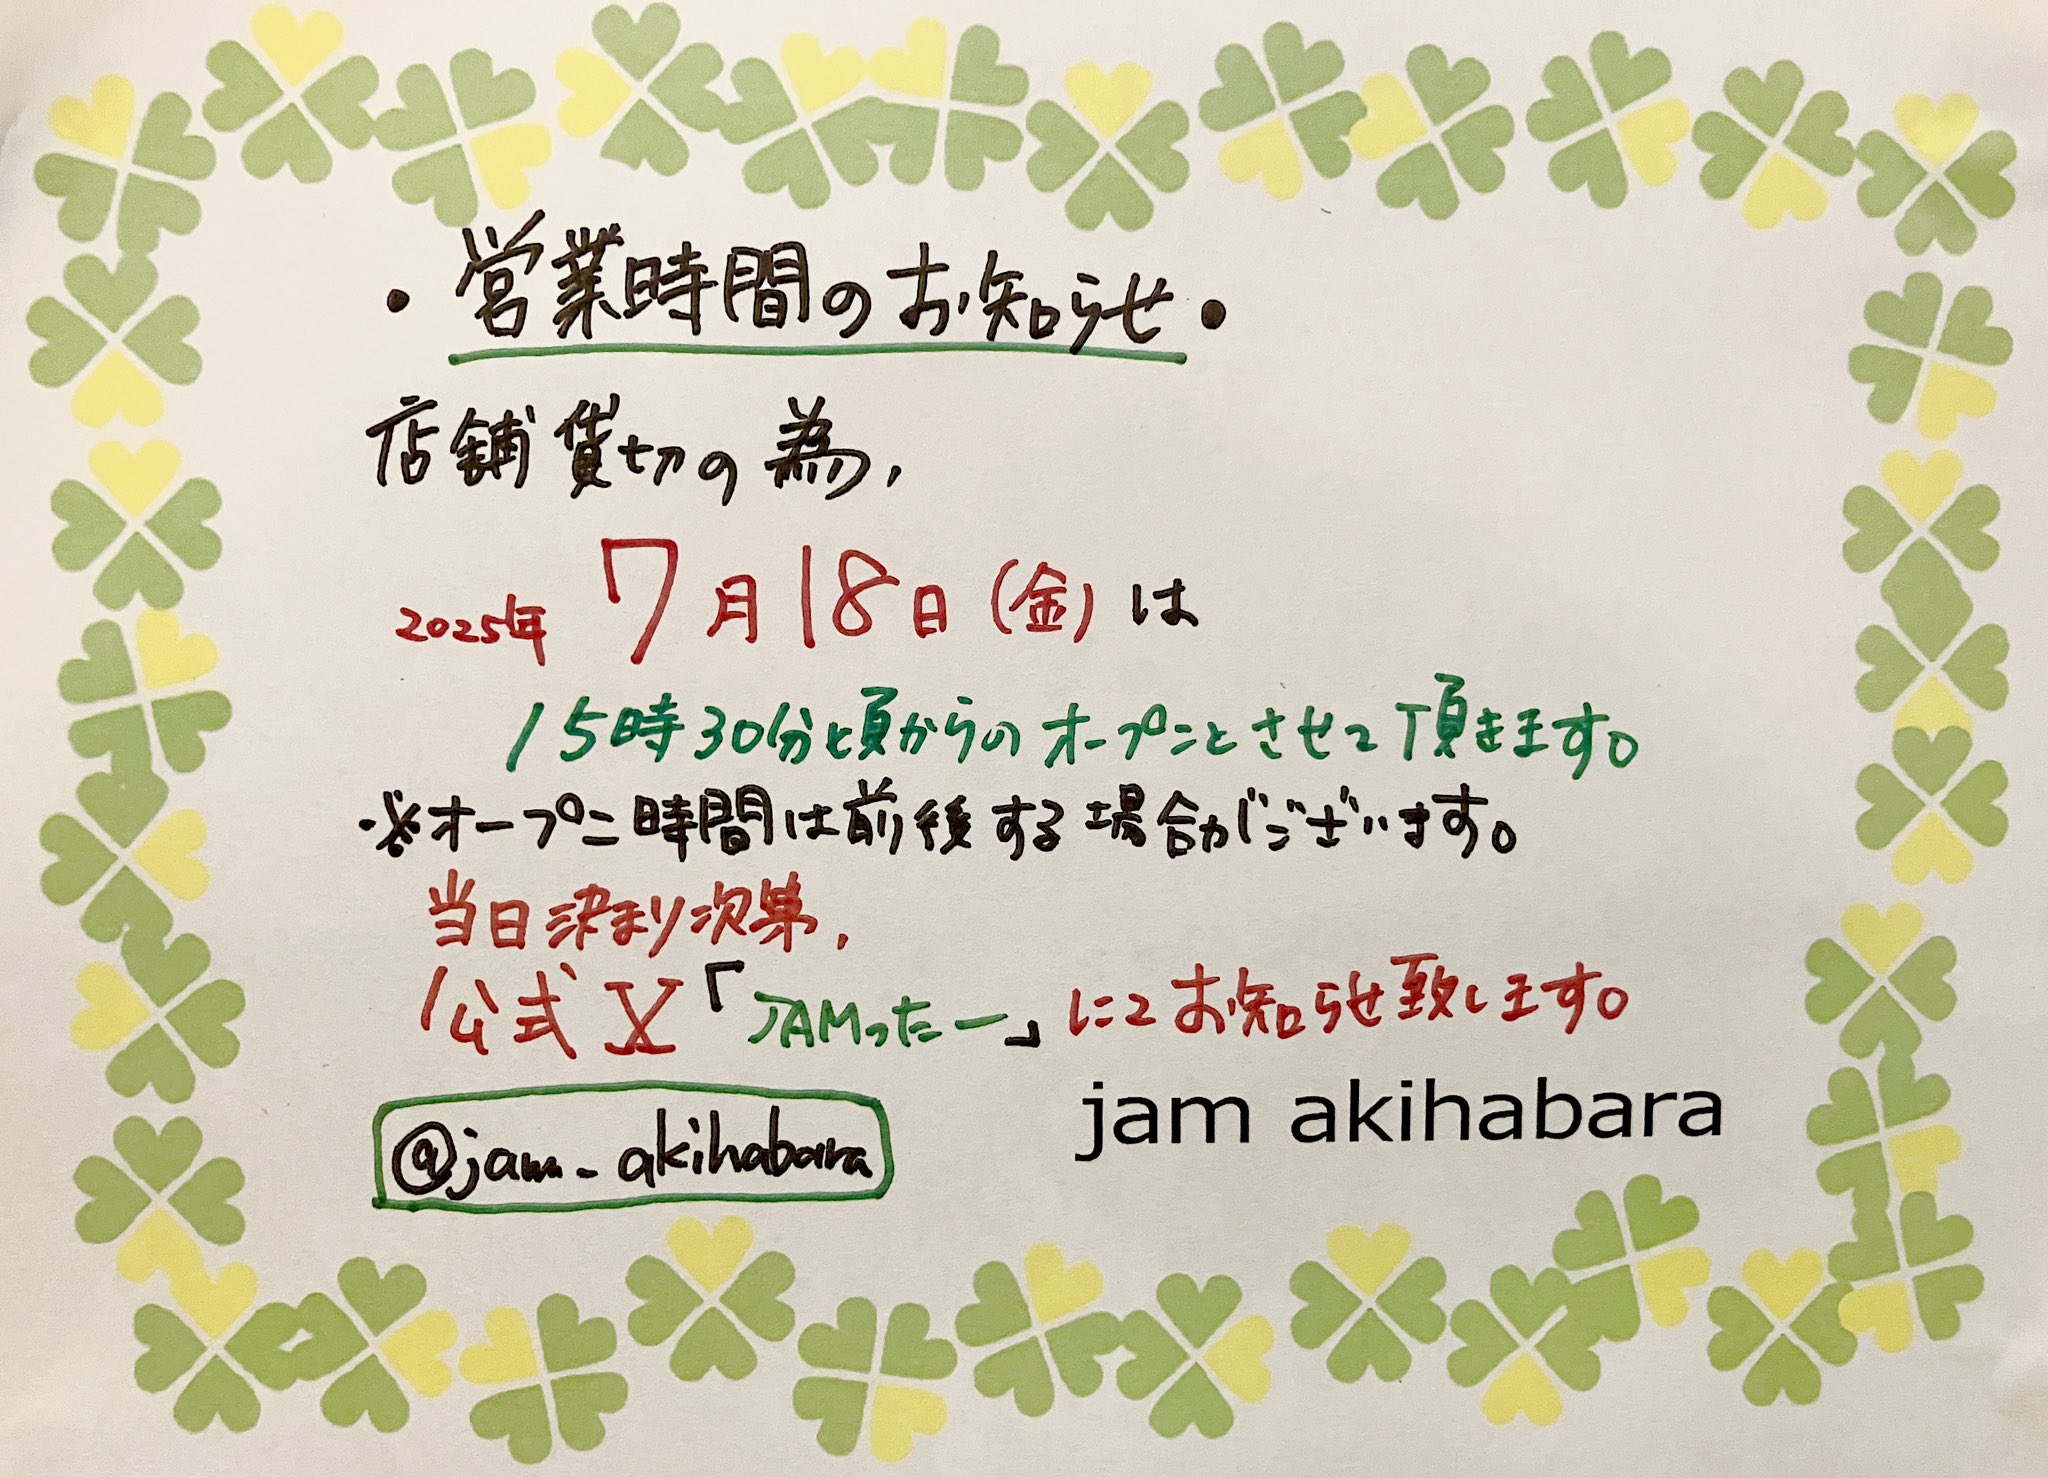 ・営業時間のお知らせ・
店舗貸切の為、
2025年 7月18日(金)は
15時30分頃からのオープンとさせて頂きます。
※オープン時間は前後する場合がございます。
当日決まり次第、
公式X「JAMったー」にてお知らせ致します。
@jam_akihabara
jam akihabara